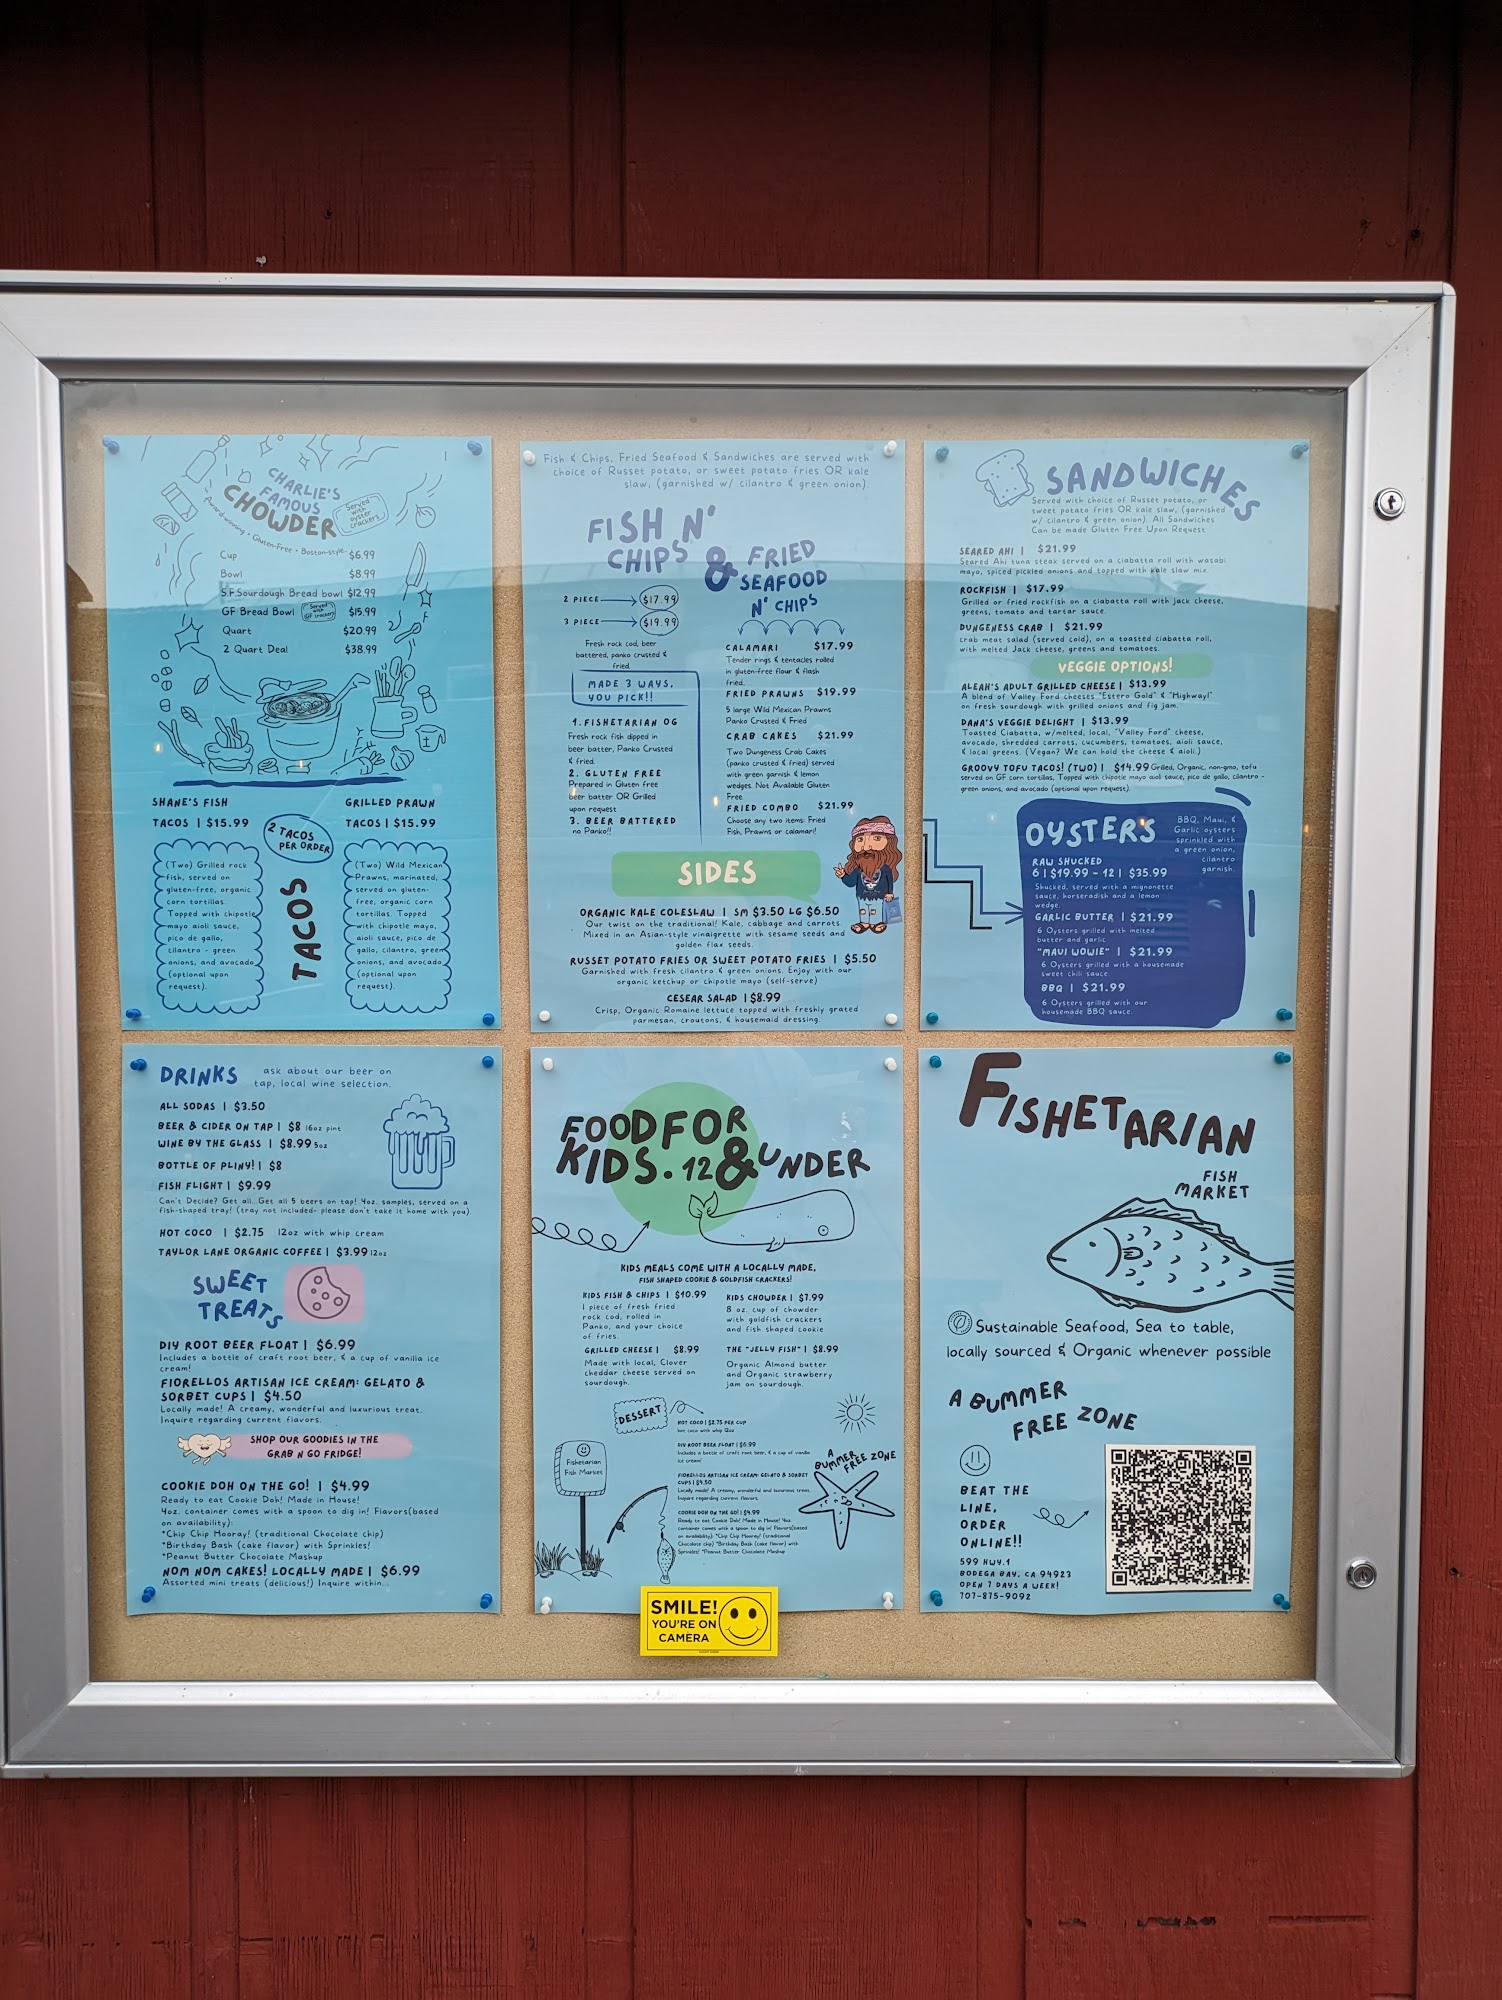 CHARLIE'S
FAMOUS
CHOWDER
Served
with
oyster
crackers
Award-winning • Gluten-Free • Boston-style-
Cup $6.99
Bowl $8.99
S.F.Sourdough Bread bowl $12.99
GF Bread Bowl Served with GF crackers $15.99
Quart $20.99
2 Quart Deal $38.99
SHANE'S FISH
TACOS | $15.99
GRILLED PRAWN
TACOS | $15.99
2 TACOS
PER ORDER
TACOS
(Two) Grilled rock
fish, served on
gluten-free, organic
corn tortillas.
Topped with chipotle
mayo aioli sauce,
pico de gallo,
cilantro - green
onions, and avocado
(optional upon
request).
(Two) Wild Mexican
Prawns, marinated,
served on gluten-
free, organic corn
tortillas. Topped
with chipotle mayo,
aioli sauce, pico de
gallo, cilantro, green
onions, and avocado
(optional upon
request).
Fish & Chips, Fried Seafood & Sandwiches are served with
choice of Russet potato, or sweet potato fries OR kale
slaw, (garnished w/ cilantro & green onion).
FISH N'
CHIPS
& FRIED
SEAFOOD
N' CHIPS
2 PIECE $17.99
3 PIECE $19.99
Fresh rock cod, beer
battered, panko crusted &
fried.
MADE 3 WAYS,
YOU PICK!!
1. FISHETARIAN OG
Fresh rock fish dipped in
beer batter, Panko Crusted
& fried.
2. GLUTEN FREE
Prepared in Gluten free
beer batter OR Grilled
upon request
3. BEER BATTERED
no Panko!!
CALAMARI $17.99
Tender rings & tentacles rolled
in gluten-free flour & flash
fried.
FRIED PRAWNS $19.99
5 large Wild Mexican Prawns
Panko Crusted & Fried
CRAB CAKES $21.99
Two Dungeness Crab Cakes
(panko crusted & fried) served
with green garnish & lemon
wedges. Not Available Gluten
Free
FRIED COMBO $21.99
Choose any two items: Fried
Fish, Prawns or calamari!
SIDES
ORGANIC KALE COLESLAW | SM $3.50 LG $6.50
Our twist on the traditional! Kale, cabbage and carrots
Mixed in an Asian-style vinaigrette with sesame seeds and
golden flax seeds.
RUSSET POTATO FRIES OR SWEET POTATO FRIES | $5.50
Garnished with fresh cilantro & green onions. Enjoy with our
organic ketchup or chipotle mayo (self-serve)
CESEAR SALAD | $8.99
Crisp, Organic Romaine lettuce topped with freshly grated
parmesan, croutons, & housemaid dressing.
SANDWICHES
Served with choice of Russet potato, or
sweet potato fries OR kale slaw, (garnished
w/ cilantro & green onion). All Sandwiches
Can be made Gluten Free Upon Request
SEARED AHI | $21.99
Seared Ahi tuna steak served on a ciabatta roll with wasabi
mayo, spiced pickled onions and topped with kale slaw mix.
ROCKFISH | $17.99
Grilled or fried rockfish on a ciabatta roll with jack cheese,
greens, tomato and tartar sauce.
DUNGENESS CRAB | $21.99
crab meat salad (served cold), on a toasted ciabatta roll,
with melted Jack cheese, greens and tomatoes.
VEGGIE OPTIONS!
ALEAH'S ADULT GRILLED CHEESE | $13.99
A blend of Valley Ford cheeses "Estero Gold" & "Highway1"
on fresh sourdough with grilled onions and fig jam.
DANA'S VEGGIE DELIGHT | $13.99
Toasted Ciabatta, w/melted, local, "Valley Ford" cheese,
avocado, shredded carrots, cucumbers, tomatoes, aioli sauce,
& local greens. (Vegan? We can hold the cheese & aioli.)
GROOVY TOFU TACOS! (TWO) | $14.99 Grilled, Organic, non-gmo, tofu
served on GF corn tortillas, Topped with chipotle mayo aioli sauce, pico de gallo, cilantro -
green onions, and avocado (optional upon request).
OYSTERS
BBQ, Maui, &
Garlic oysters
sprinkled with
a green onion,
cilantro
garnish.
RAW SHUCKED
6 | $19.99 - 12 | $35.99
Shucked, served with a mignonette
sauce, horseradish and a lemon
wedge.
GARLIC BUTTER | $21.99
6 Oysters grilled with melted
butter and garlic
"MAUI WOWIE" | $21.99
6 Oysters grilled with a housemade
sweet chili sauce.
BBQ | $21.99
6 Oysters grilled with our
housemade BBQ sauce.
DRINKS ask about our beer on
tap, local wine selection.
ALL SODAS | $3.50
BEER & CIDER ON TAP | $8 16oz pint
WINE BY THE GLASS | $8.99 5oz
BOTTLE OF PLINY! | $8
FISH FLIGHT | $9.99
Can't Decide? Get all..Get all 5 beers on tap! 4oz. samples, served on a
fish-shaped tray! (tray not included- please don't take it home with you).
HOT COCO | $2.75 12oz with whip cream
TAYLOR LANE ORGANIC COFFEE | $3.99 12oz
SWEET
TREATS
DIY ROOT BEER FLOAT | $6.99
Includes a bottle of craft root beer, & a cup of vanilla ice
cream!
FIORELLOS ARTISAN ICE CREAM: GELATO &
SORBET CUPS | $4.50
Locally made! A creamy, wonderful and luxurious treat.
Inquire regarding current flavors.
SHOP OUR GOODIES IN THE
GRAB N GO FRIDGE!
COOKIE DOH ON THE GO! | $4.99
Ready to eat Cookie Doh! Made in House!
4oz. container comes with a spoon to dig in! Flavors(based
on availability):
*Chip Chip Hooray! (traditional Chocolate chip)
*Birthday Bash (cake flavor) with Sprinkles!
*Peanut Butter Chocolate Mashup
NOM NOM CAKES! LOCALLY MADE | $6.99
Assorted mini treats (delicious!) Inquire within...
FOOD FOR
KIDS. 12 & UNDER
KIDS MEALS COME WITH A LOCALLY MADE,
FISH SHAPED COOKIE & GOLDFISH CRACKERS!
KIDS FISH & CHIPS | $10.99
1 piece of fresh fried
rock cod, rolled in
Panko, and your choice
of fries.
KIDS CHOWDER | $7.99
8 oz. cup of chowder
with goldfish crackers
and fish shaped cookie
GRILLED CHEESE | $8.99
Made with local, Clover
cheddar cheese served on
sourdough.
THE "JELLY FISH" | $8.99
Organic Almond butter
and Organic strawberry
jam on sourdough.
DESSERT
HOT COCO | $2.75 PER CUP
hot coco with whip 12oz
DIY ROOT BEER FLOAT | $6.99
Includes a bottle of craft root beer, & a cup of vanilla
ice cream!
FIORELLOS ARTISAN ICE CREAM: GELATO & SORBET
CUPS | $4.50
Locally made! A creamy, wonderful and luxurious treat.
Inquire regarding current flavors.
COOKIE DOH ON THE GO! | $4.99
Ready to eat Cookie Doh! Made in House! 4oz.
container comes with a spoon to dig in! Flavors(based
on availability): *Chip Chip Hooray! (traditional
Chocolate chip) *Birthday Bash (cake flavor) with
Sprinkles! *Peanut Butter Chocolate Mashup
Fishetarian
Fish Market
A
BUMMER
FREE ZONE
SMILE!
YOU'RE ON
CAMERA
FISHETARIAN
FISH
MARKET
Sustainable Seafood, Sea to table,
locally sourced & Organic whenever possible
A BUMMER
FREE ZONE
BEAT THE
LINE,
ORDER
ONLINE!!
599 HWY.1
BODEGA BAY, CA 94923
OPEN 7 DAYS A WEEK!
707-875-9092